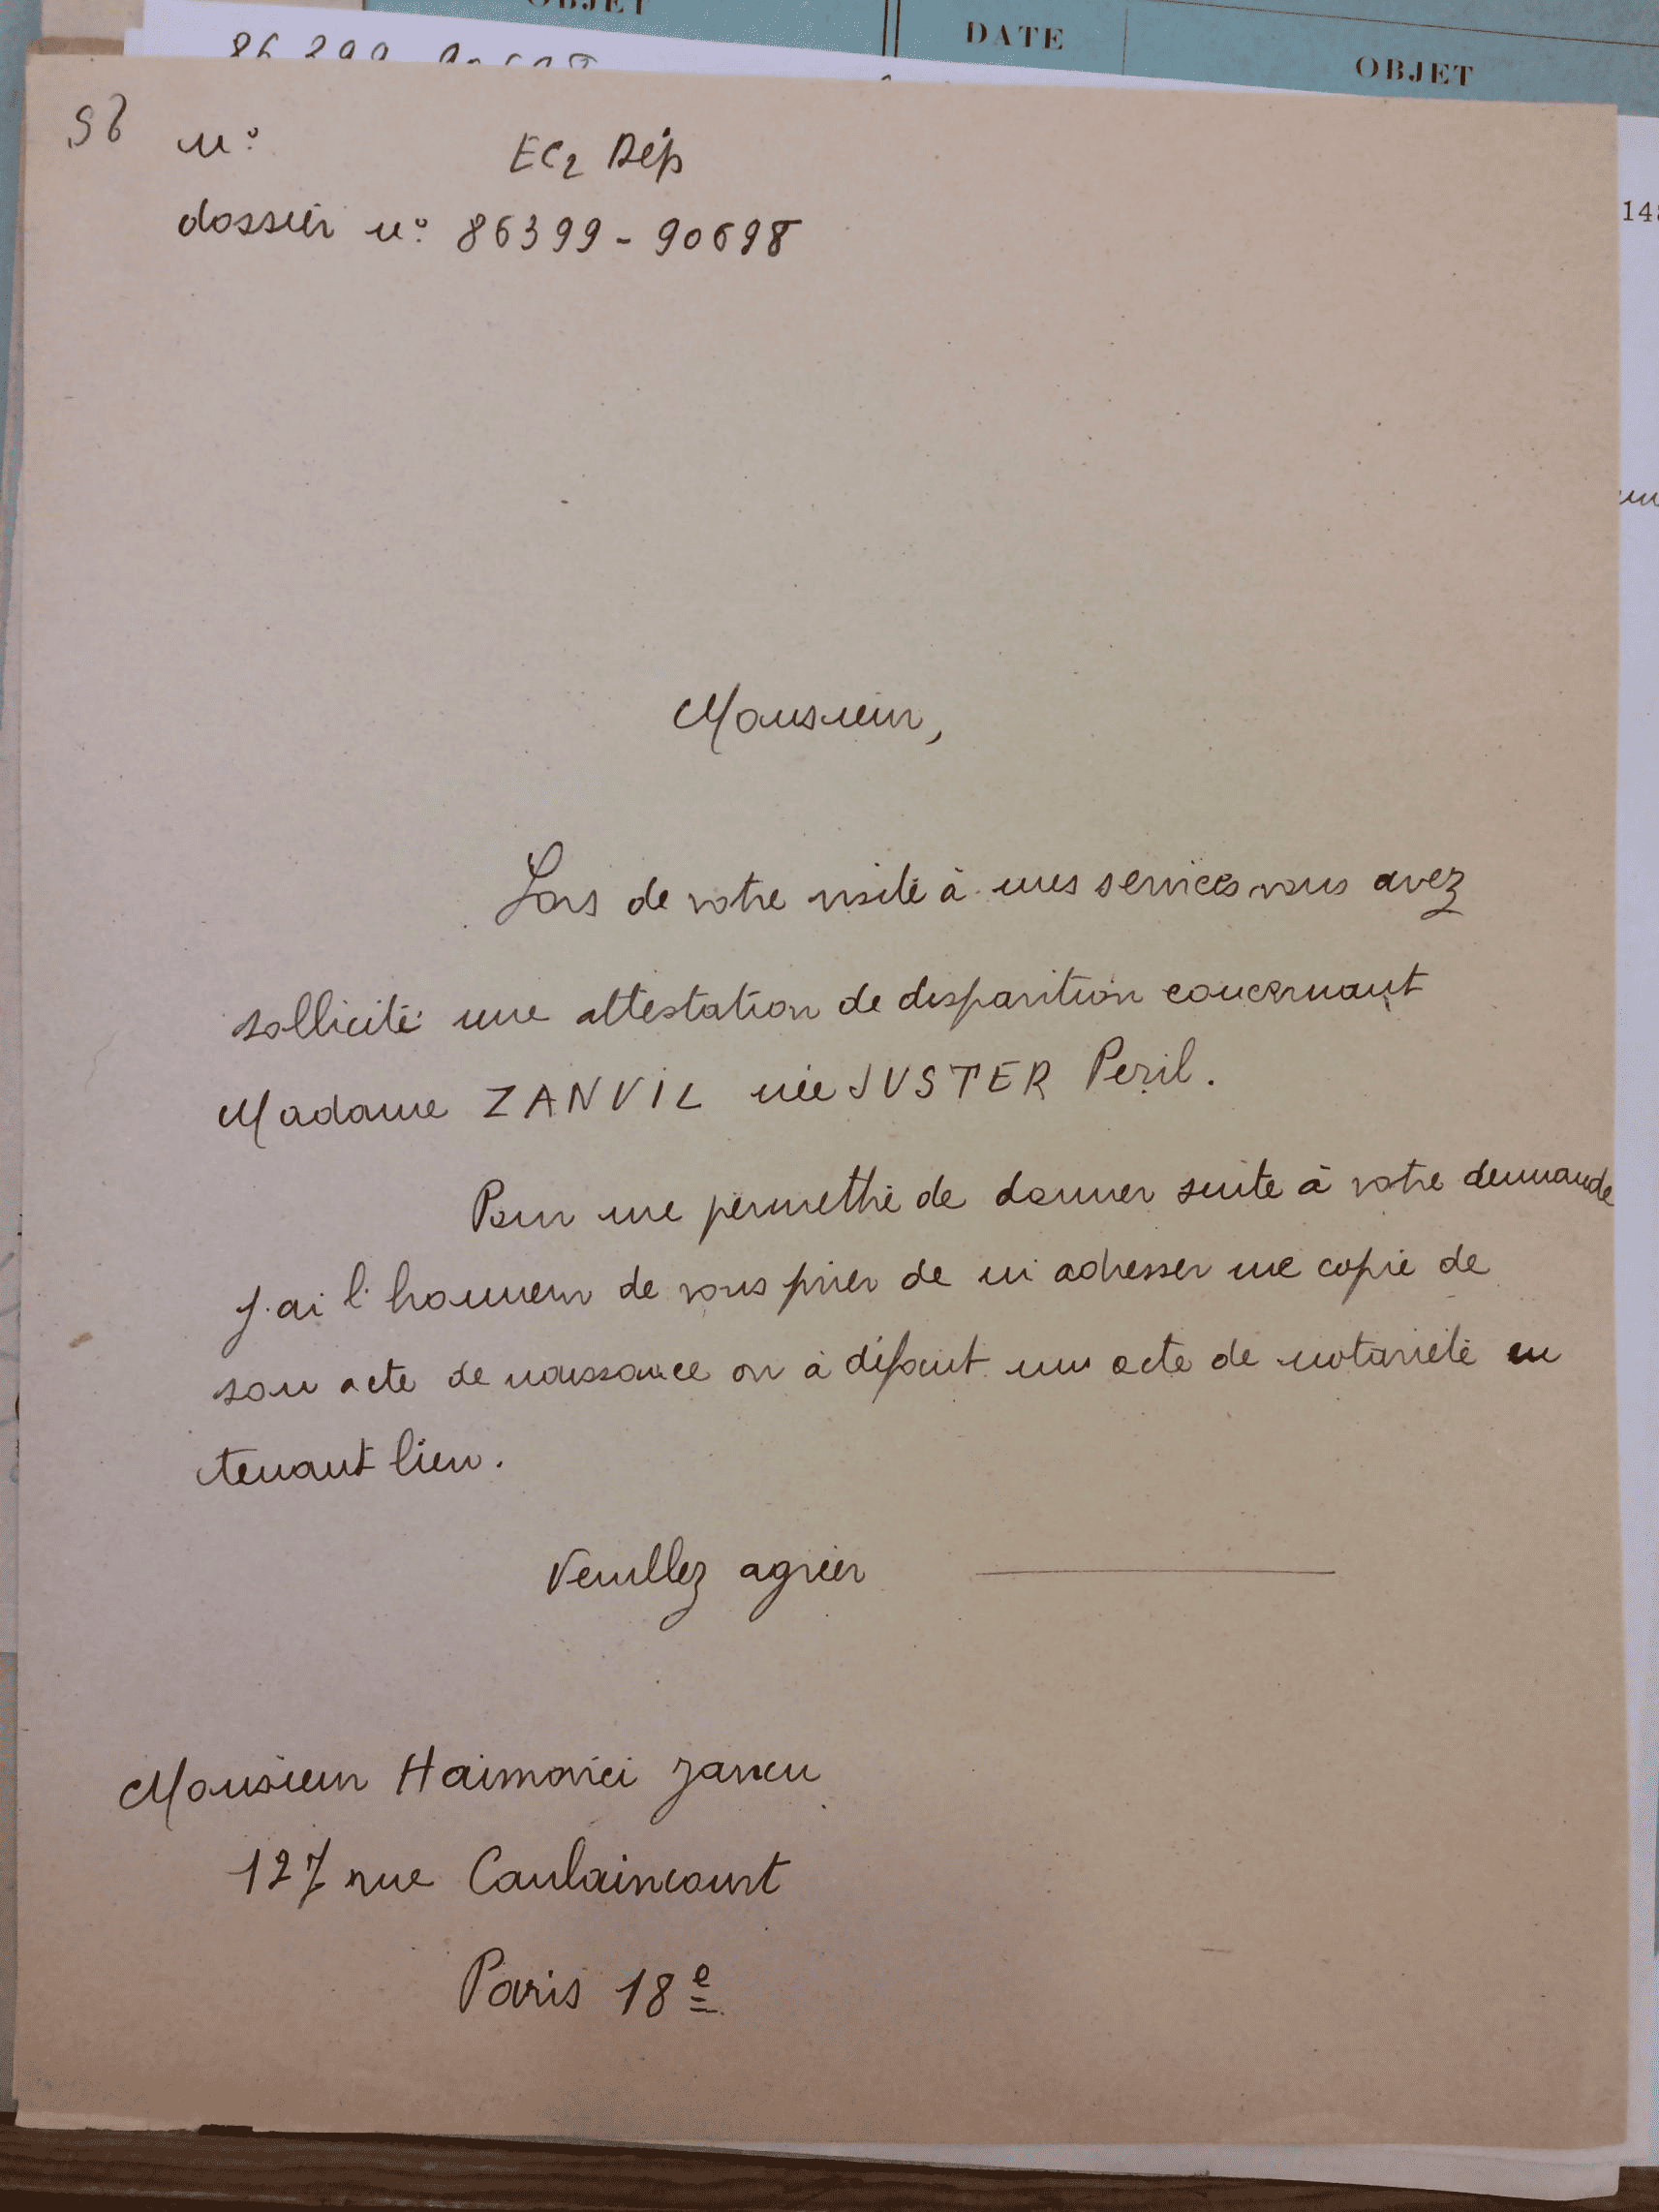 OBJET
DATE
OBJET
86 399 90698
148
n° EC2 Dép
dossier n° 86399 - 90698
Monsieur,
Lors de votre visite à mes services vous avez
sollicité une attestation de disparition concernant
Madame ZANVIL née JUSTER Peril.
Pour me permettre de donner suite à votre demande
j'ai l'honneur de vous prier de m'adresser une copie de
son acte de naissance ou à défaut un acte de notariété en
tenant lieu.
Veuillez agréer
Monsieur Haimovici Jancu
127 rue Caulaincourt
Paris 18e